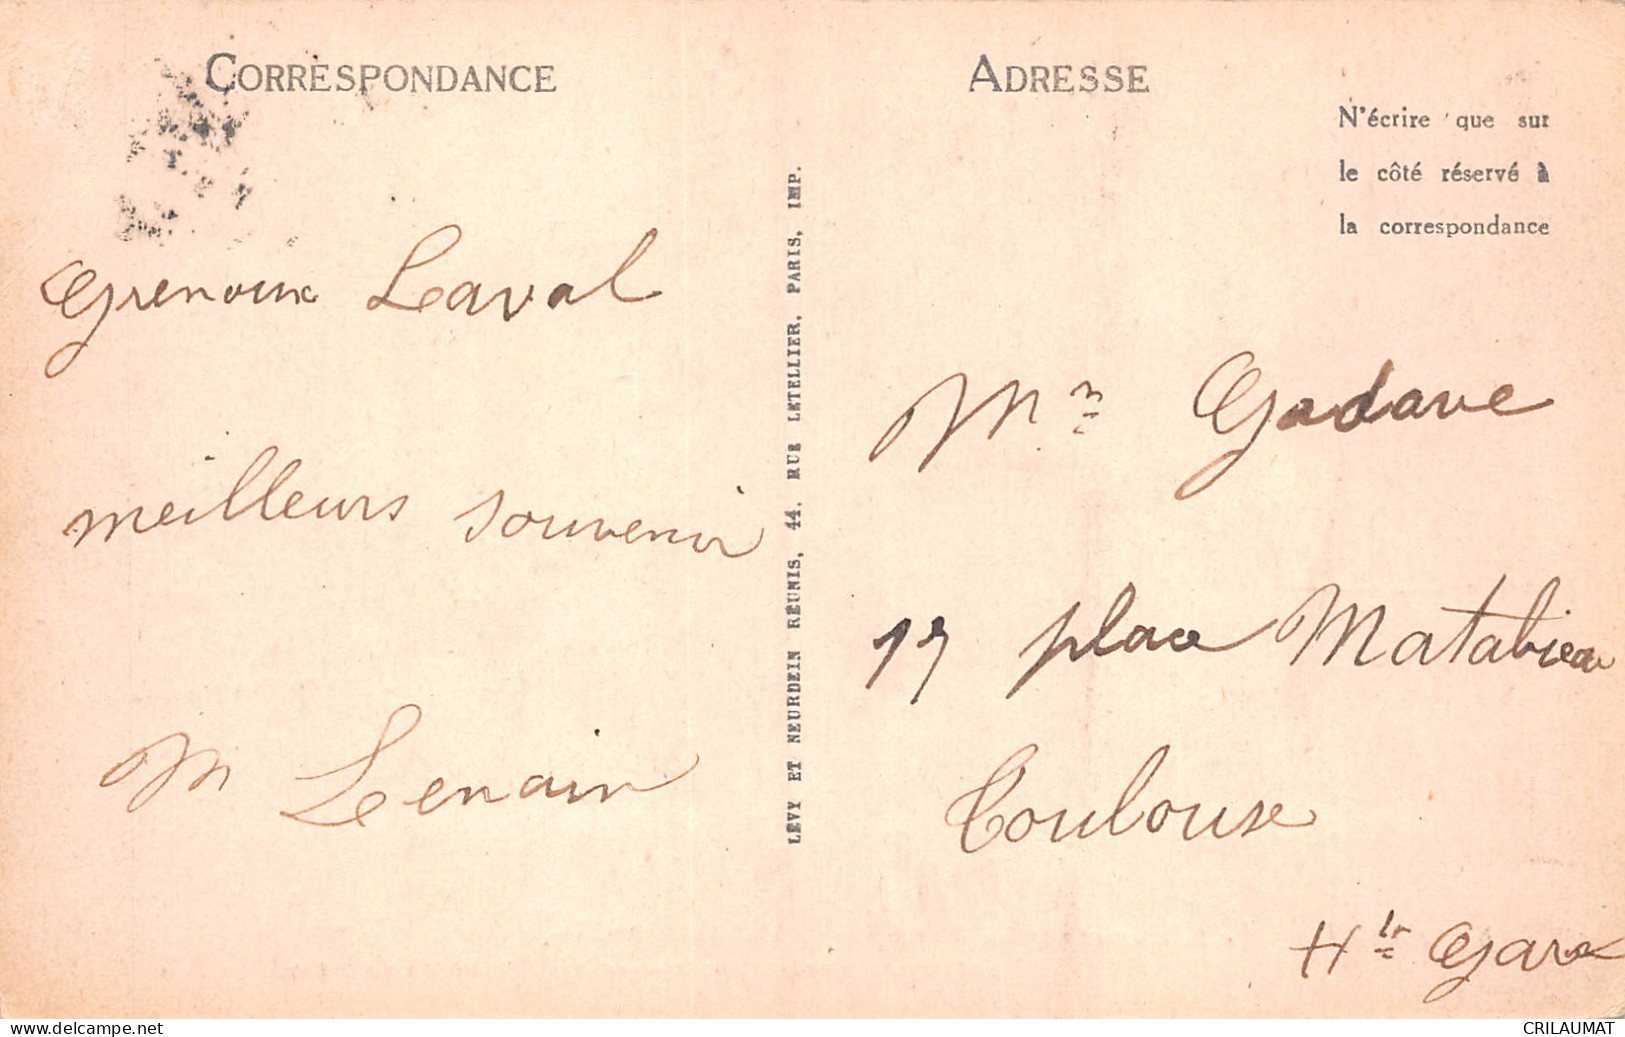 CORRESPONDANCE
Grenoux Laval
meilleurs souvenir
M Lenain
LÉVY ET NEURDEIN RÉUNIS, 44, RUE LETELLIER, PARIS, IMP.
ADRESSE
N'écrire que sur
le côté réservé à
la correspondance
Mme Gadave
17 place Matabiau
Toulouse
Hte Gar
www.delcampe.net
CRILAUMAT